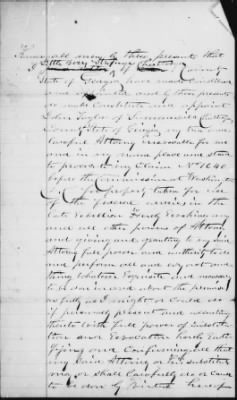 Know all men by these presents that
I Littleberry
State of Georgia have made constituted
and by these presents
do make constitute and appoint
John Taylor of Summerville
County State of Georgia my true and
Lawful Attorney irrevocable for me
and in my name place and stead
to prosecute my Claim No
before the Commission at Washington
D.C. for property taken for use
of the Federal armies in the
late rebellion hereby revoking any
and all other powers of Attorney
and giving and granting to my said
Attorney full power and authority to do
and perform all and every act and
thing whatsoever requisite and necessary
to be done in and about the premises
as fully as I might or could do
if personally present and
thereto with full power of substitution
and revocation hereby
and Confirming all that
my said Attorney or his substitute
may or shall lawfully do or cause
to be done by Virtue hereof